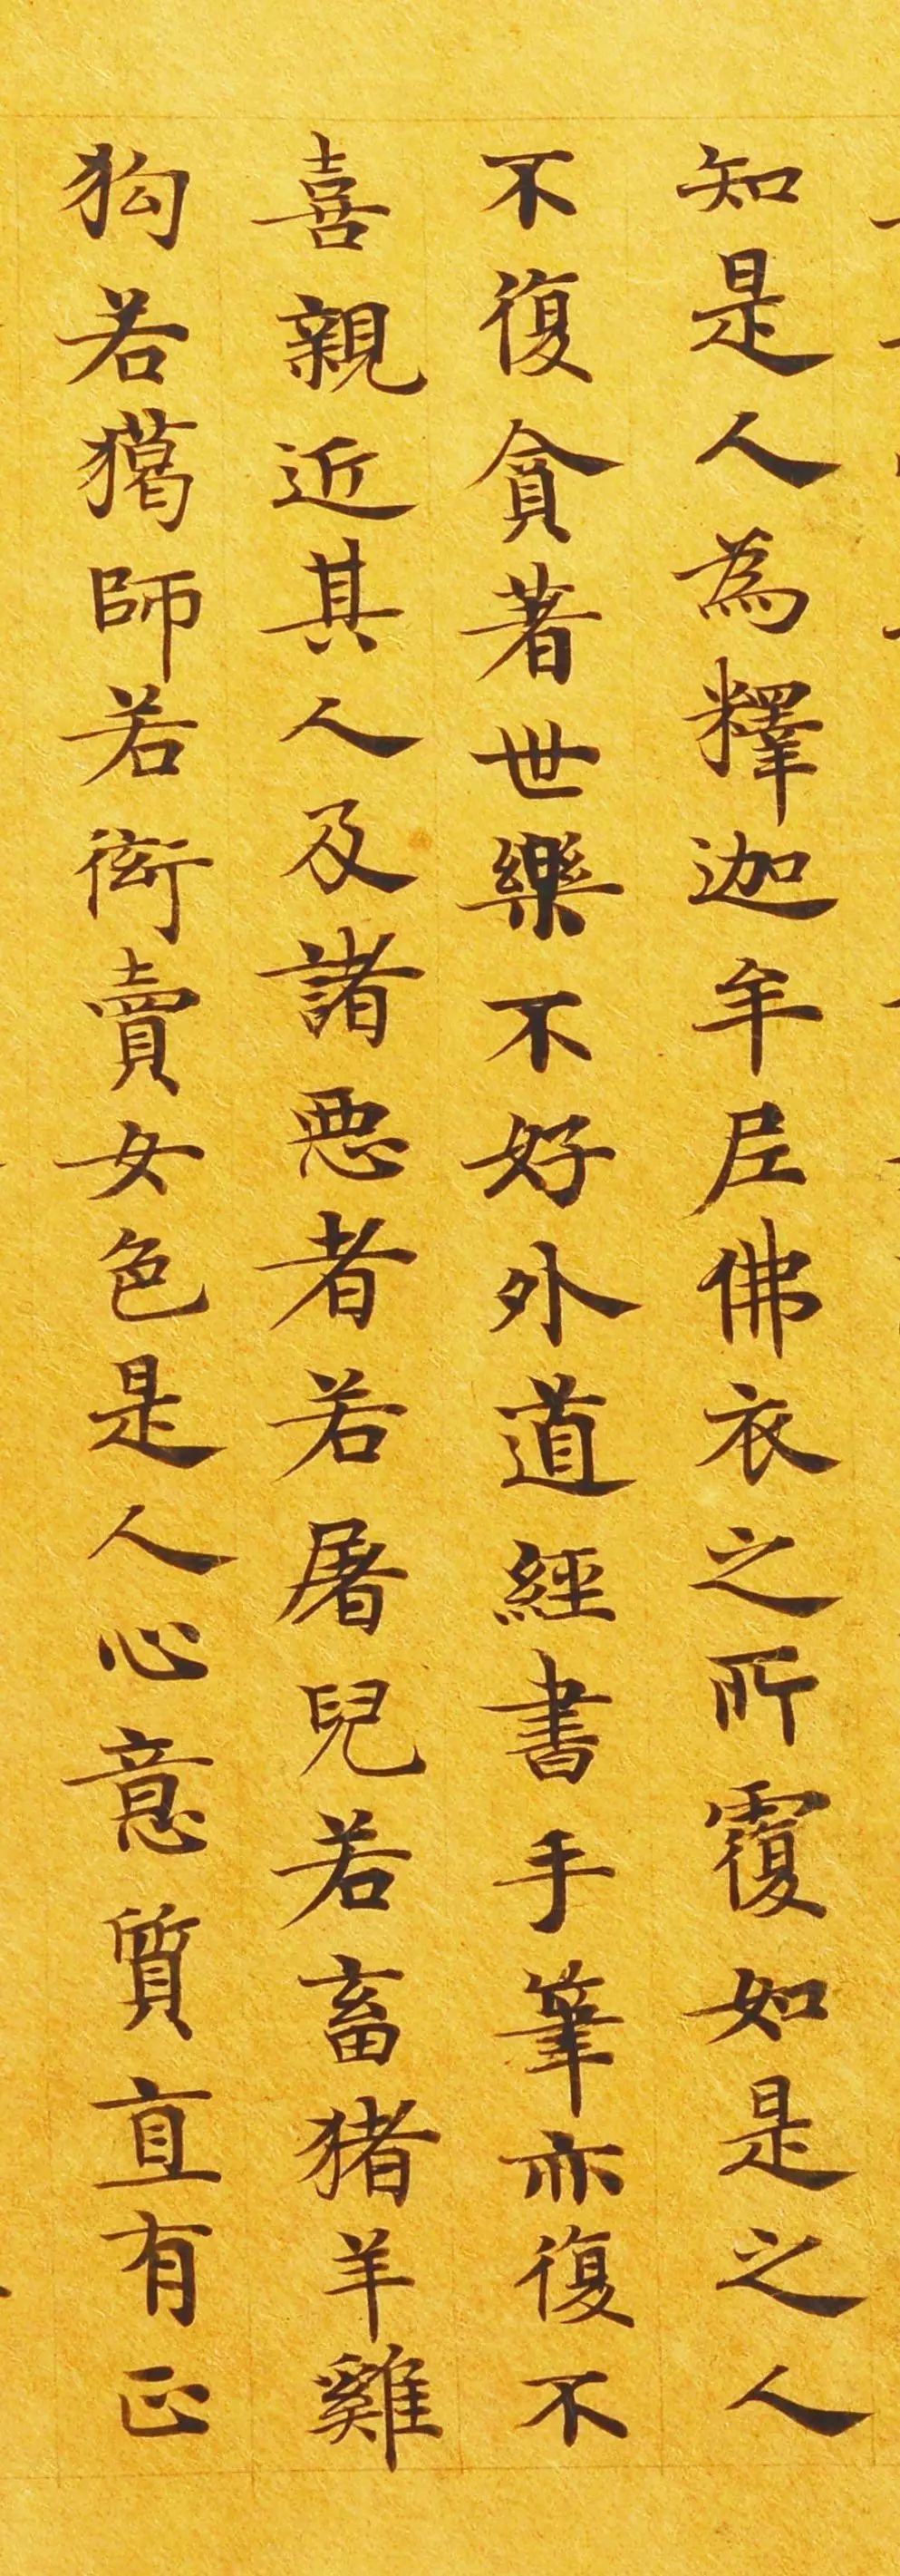 知是人為釋迦牟尼佛衣之所覆如是之人
不復貪著世樂不好外道經書手筆亦復不
喜親近其人及諸惡者若屠兒若畜猪羊雞
狗若獦師若衒賣女色是人心意質直有正